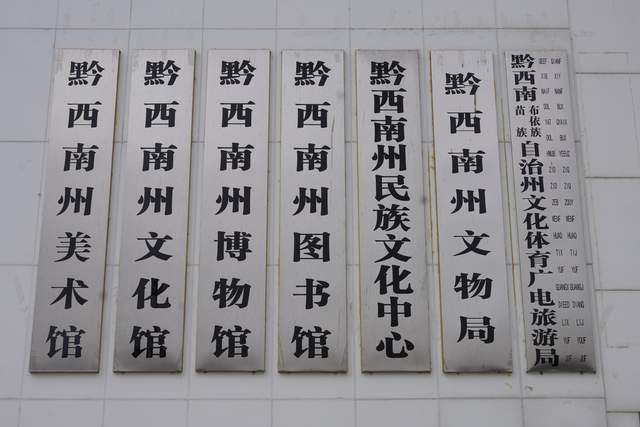 黔西南州美术馆
黔西南州文化馆
黔西南州博物馆
黔西南州图书馆
黔西南州民族文化中心
黔西南州文物局
黔西南布依族苗族自治州文化体育广电旅游局